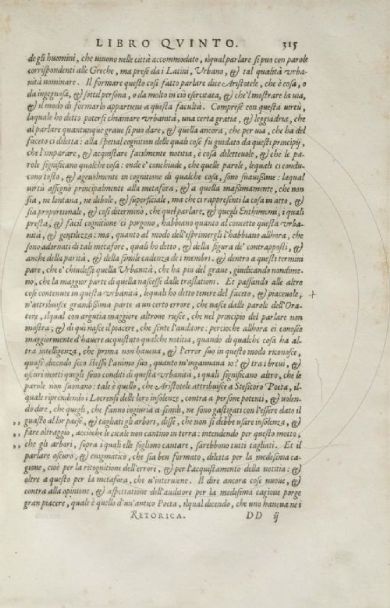 LIBRO QVINTO. 315
de gli huomini, che uiuono nelle città accommodato, ilqual parlare si può con parole
corrispondenti alle Greche, ma prese da i Latini, Vrbano, & tal qualità vrba-
nità nominare. Il formare questo così fatto parlare dice Aristotele, che è cosa, o
da ingegnosa, & sottil persona, o da molto in ciò esercitata, & che'l mostrare la uia,
& il modo di formarlo appartiene a questa facultà. Comprese con questa uirtù,
laquale ho detto potersi chiamare vrbanità, una certa gratia, & leggiadria, che
al parlare quantunque graue si può dare, & quella ancora, che per uia, che ha del
faceto ci diletta: alla spetial cognition delle quali cose fu guidato da questi principij,
che l'imparare, & acquistare facilmente notitia, è cosa dilettevole, & che le pa-
role significano qualche cosa: onde è conchiude, che quelle parole, lequali ci condu-
cono tosto, & ageuolmente in cognitione di qualche cosa, sono suauissime: laqual
uirtù assegnò principalmente alla metafora, & a quella massimamente, che non
sia, ne lontana, ne debole, & superficiale, ma che ci rappresenti la cosa in atto, &
sia proportionale, & così determinò, che quel parlare, & quegli Enthimemi, i quali
presta, & facil cognitione ci porgono, habbiano quanto al concetto questa vrba-
nità, & gentilezza: ma, quanto al modo dell'esprimergli l'habbiano allhora, che
sono adornati di tal metafore, quali ho detto, & della figura de' contrapposti, &
anche della parità, & della simile cadenza de i membri. & dentro a questi termini
pare, che è chiudesse quella Vrbanità, che ha più del graue, giudicando nondime-
no, che la maggior parte di quella nascesse dalle traslationi. Et passando alle altre
cose contenute in questa vrbanità, lequali ho detto tenere del faceto, & piaceuole,
n'attribuisce grandissima parte a un certo errore, che nasce dalle parole dell'Ora-
tore, ilqual con argutia maggiore altroue riesce, che nel principio del parlare non
mostra; & di qui nasce il piacere, che sente l'auditore: percioche allhora ei conosce
maggiormente d'hauere acquistato qualche notitia, quando di qualche cosa ha al-
tra intelligenza, che prima non haueua, & l'error suo in questo modo riconosce,
quasi dicendo seco stesso l'animo suo, quanto m'ingannaua io? & tra i breui, &
oscuri motti quegli sono conditi di questa vrbanità, i quali significano altro, che le
parole non suonano: tale è quello, che Aristotele attribuisce a Stesicoro Poeta, il-
quale riprendendo i Locrensi delle loro insolenze, contra a persone potenti, & volen-
do dire, che quegli, che fanno ingiuria a simili, ne sono gastigati con l'essere dato il
guasto al lor paese, & tagliati gli arbori, disse, che non si debbe usare insolenza, &
fare oltraggio, accioche le cicale non cantino in terra: intendendo per questo motto,
che gli arbori, sopra i quali elle sogliono cantare, sarebbono tutti tagliati. Et il
parlare oscuro, & enigmatico, che sia ben formato, diletta per la medesima ca-
gione, cioè per la ricognitione dell'errore, & per l'acquistamento della notitia: &
oltre a questo per la metafora, che u'interuiene. Il dire ancora cose nuoue, &
contra alla opinione, & aspettatione dell'auditore per la medesima cagione porge
gran piacere, quale è quello d'un'antico Poeta, ilqual dicendo, che uno haueua ne i
RETORICA. DD ij